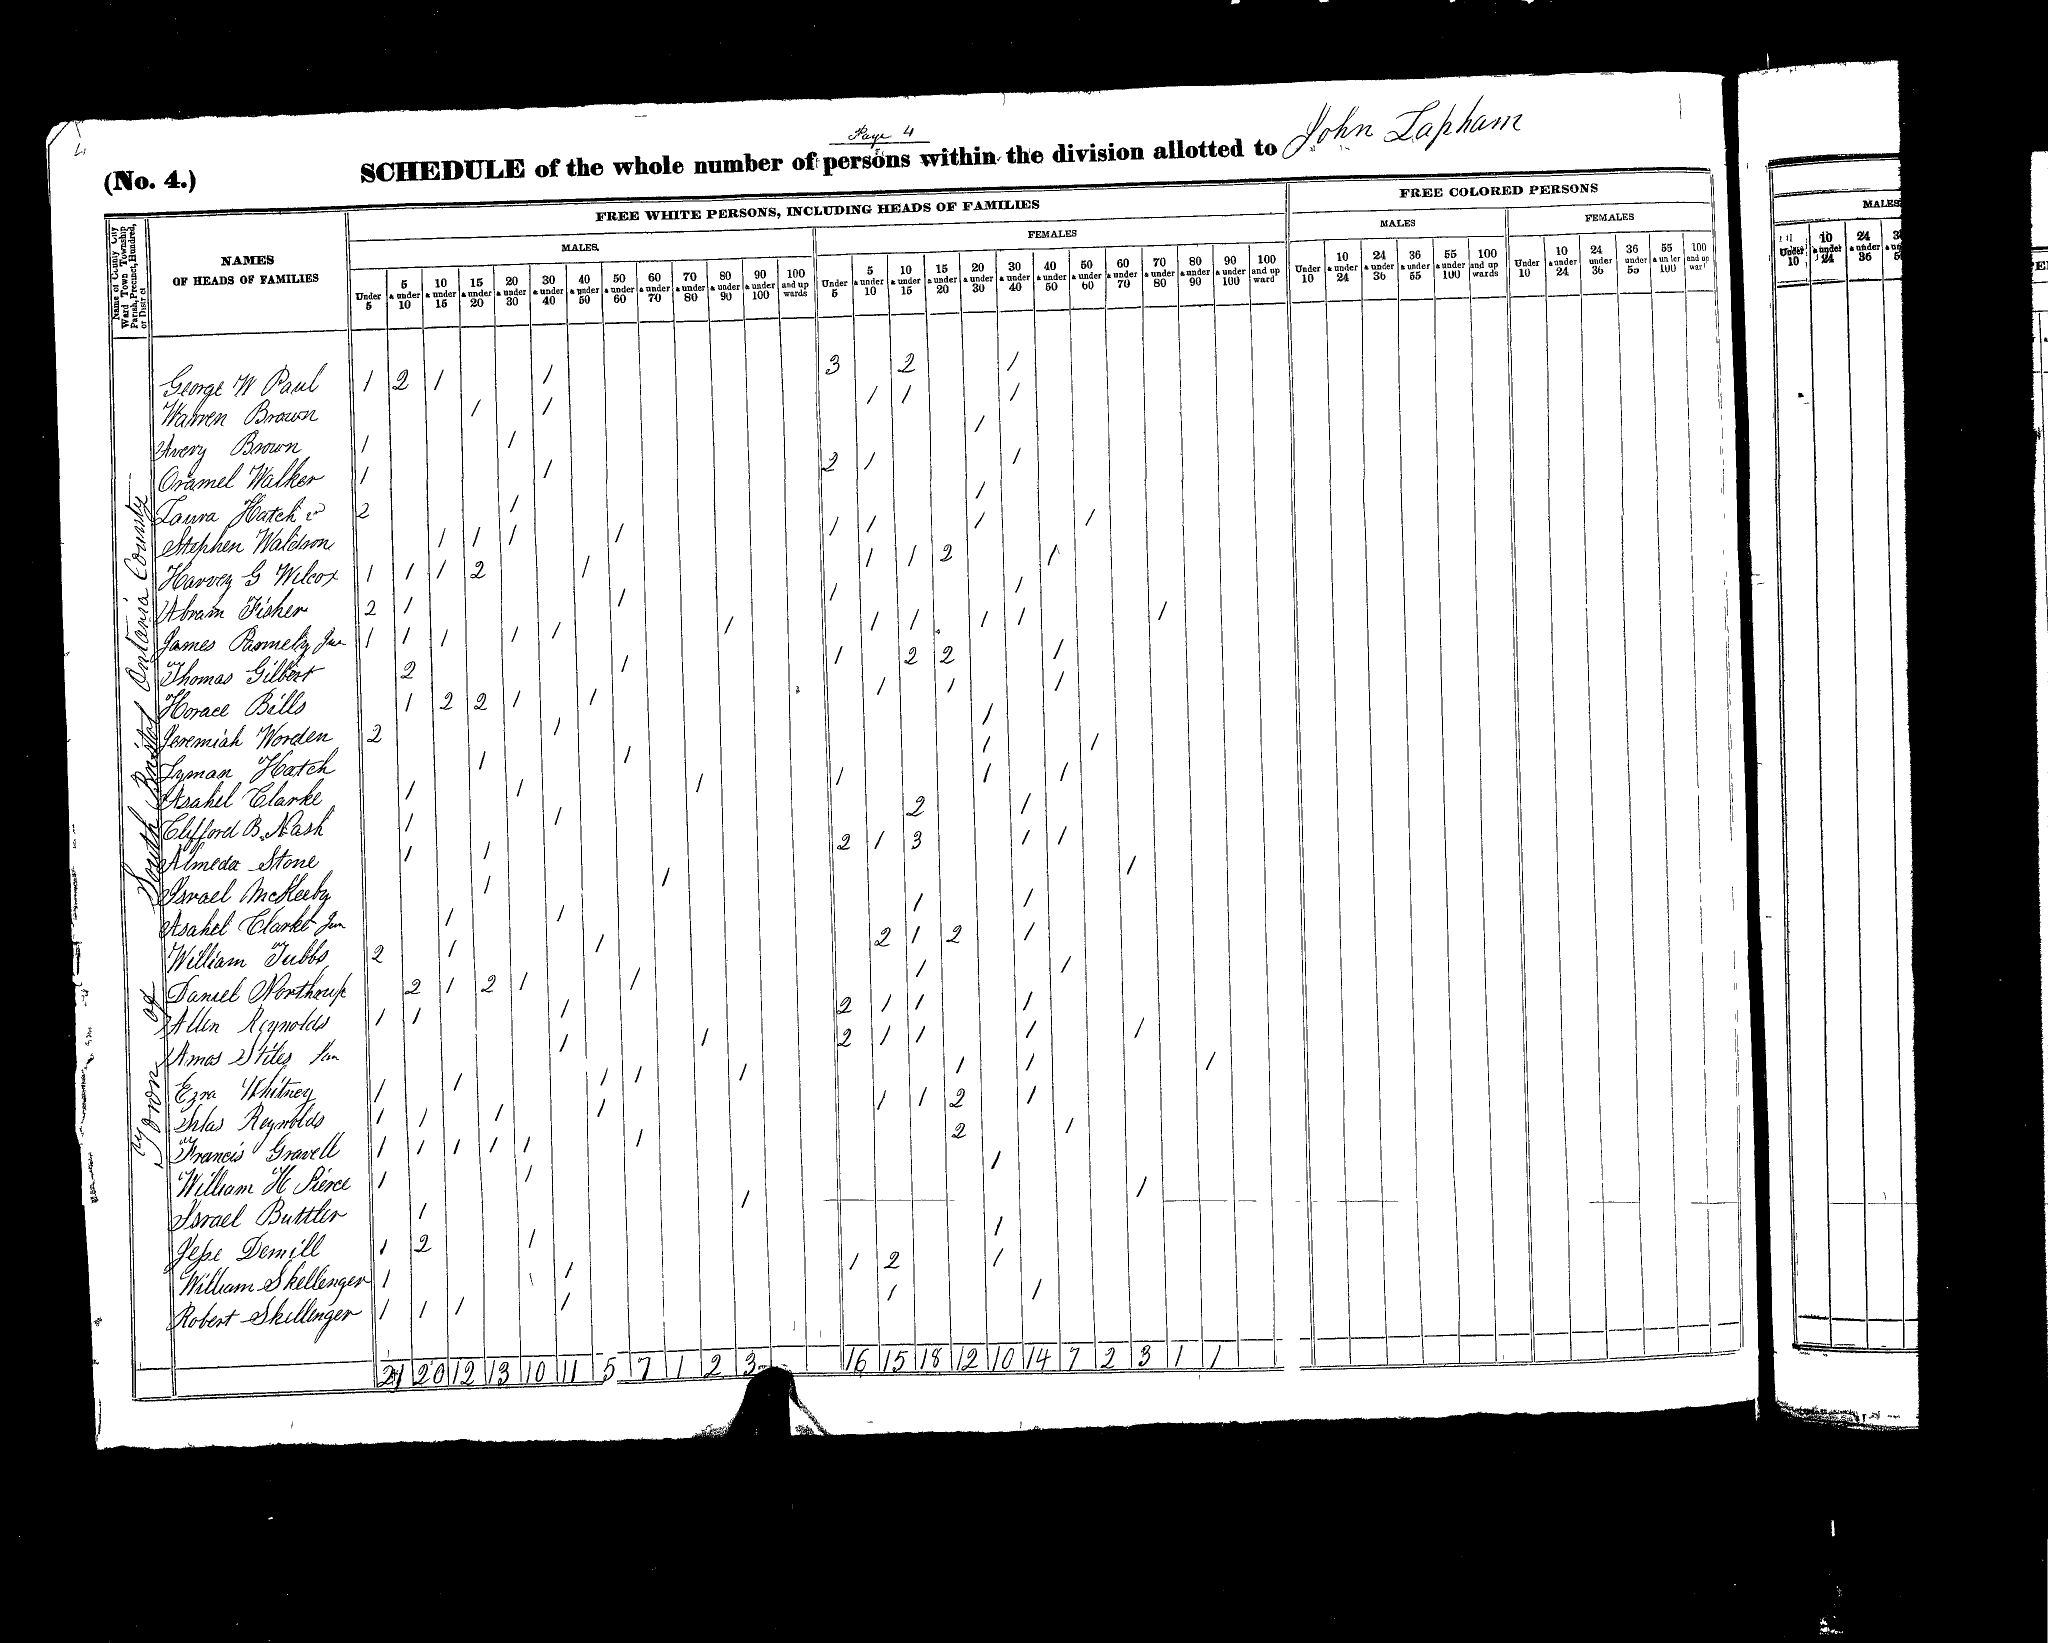 Page 4
(No. 4.) SCHEDULE of the whole number of persons within the division allotted to John Lapham
Name of County City Ward Town Township Parish, Precinct, Hundred, or District
NAMES OF HEADS OF FAMILIES
FREE WHITE PERSONS, INCLUDING HEADS OF FAMILIES
FREE COLORED PERSONS
MALES
FEMALES
MALES
FEMALES
Under 5 | 5 & under 10 | 10 & under 15 | 15 & under 20 | 20 & under 30 | 30 & under 40 | 40 & under 50 | 50 & under 60 | 60 & under 70 | 70 & under 80 | 80 & under 90 | 90 & under 100 | 100 and up wards
Under 5 | 5 & under 10 | 10 & under 15 | 15 & under 20 | 20 & under 30 | 30 & under 40 | 40 & under 50 | 50 & under 60 | 60 & under 70 | 70 & under 80 | 80 & under 90 | 90 & under 100 | 100 and up ward
Under 10 | 10 & under 24 | 24 & under 36 | 36 & under 55 | 55 & under 100 | 100 and up wards
Under 10 | 10 & under 24 | 24 under 36 | 36 under 55 | 55 & under 100 | 100 and up war
Town of South Bristol Ontario County
George W Paul 1 2 1 1 3 2 1
Warren Brown 1 1 1 1 1
Avery Brown 1 1 1
Oramel Walker 1 1 2 1 1
Laura Hatch 2 1 1
Stephen Waldson 1 1 1 1 1 1 1 1
Harvey G Wilcox 1 1 1 2 1 1 1 2 1
Abram Fisher 2 1 1 1 1
James Parmely Jun 1 1 1 1 1 1 1 1 1 1 1
Thomas Gilbert 2 1 1 2 2 1
Horace Bills 1 2 2 1 1 1 1 1
Jeremiah Worden 2 1 1
Lyman Hatch 1 1 1 1
Asahel Clarke 1 1 1 1 1 1
Clifford B. Nash 1 1 2 1
Almeda Stone 1 1 2 1 3 1 1
Israel McKeeby 1 1 1
Asahel Clarke Jun 1 1 1 1
William Tubbs 2 1 1 2 1 2 1
Daniel Northrup 2 1 2 1 1 1 1
Allen Reynolds 1 1 1 2 1 1 1
Amos Stiles 1 1 2 1 1 1 1
Ezra Whitney 1 1 1 1 1 1 1 1
Silas Reynolds 1 1 1 1 1 1 2 1
Francis Gravell 1 1 1 1 1 1 2 1
William H Pierce 1 1 1
Israel Buttler 1 1 1
Jesse Demill 1 2 1 1
William Skellenger 1 1 1 2 1
Robert Skellenger 1 1 1 1 1 1
21 20 12 13 10 11 5 7 1 2 3 16 15 18 12 10 14 7 2 3 1 1
MALES
Under 10 | 10 & under 24 | 24 & under 36